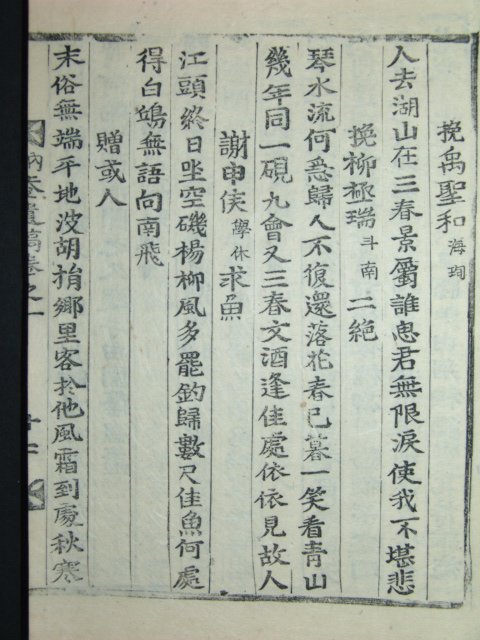 挽禹聖和海珣
人去湖山在三春景屬誰思君無限淚使我不堪悲
挽柳極瑞斗南二絶
琴水流何急歸人不復還落花春已暮一笑看青山
幾年同一硯九會又三春文酒逢佳處依依見故人
謝申侯學休求魚
江頭終日坐空磯楊柳風多罷釣歸數尺佳魚何處
得白鴎無語向南飛
贈或人
末俗無端平地波胡揹鄉里客於他風霜到處秋寒
遺稿卷之一